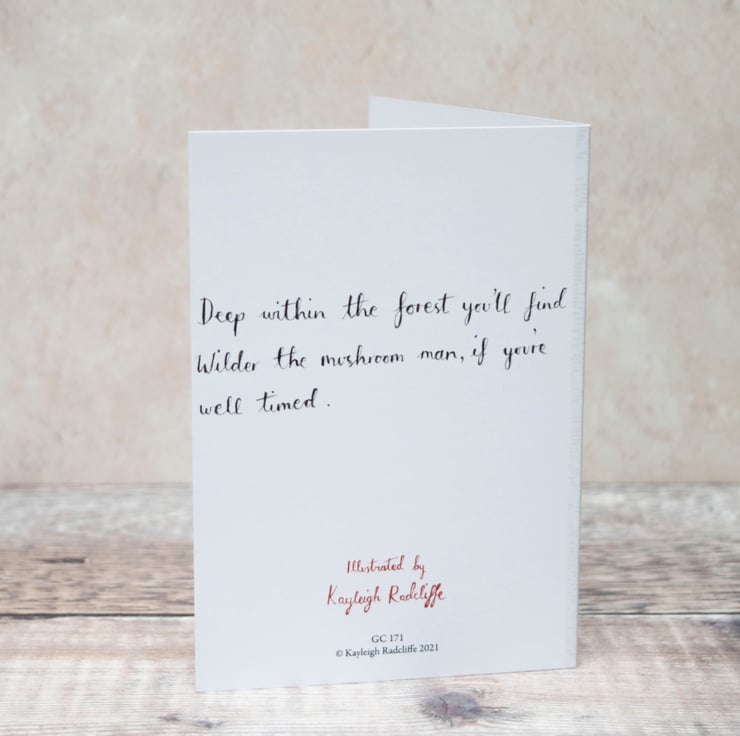 Deep within the forest you'll find
Wilder the mushroom man, if you're
well timed.
Illustrated by
Kayleigh Radcliffe
GC 171
© Kayleigh Radcliffe 2021